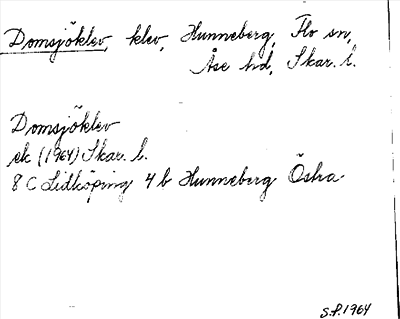 Domsjöklev, klev, Hunneberg, Flo sn,
Åse hd, Skar. l.
Domsjöklev
ek (1964) Skar. l.
8 C Lidköping 4 b Hunneberg Östra.
S.P. 1964